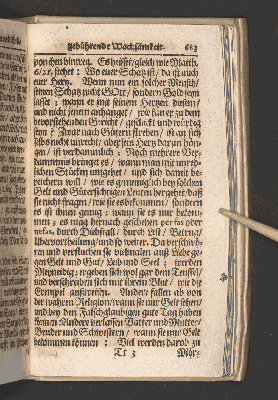 gebührende Wachsamkeit. 663
von ihm hinweg. Es heisset/ gleich wie Matth.
6/21. stehet: Wo euer Schatz ist/ da ist auch
euer Hertz. Wenn nun ein solcher Mensch/
seinen Schatz nicht GOtt/ sondern Gold seyn
lässet/ wann er mit seinem Hertzen diesem/
und nicht jenem anhanget/ wie kan er zu dem
bevorstehenden Gericht/ geschickt und würdig
seyn? Zwar nach Gütern streben/ ist an sich
selbs nicht unrecht/ aber sein Hertz daran hän-
gen/ ist verdammlich: Noch mehrere Ver-
dammnis bringet es/ wann man mit unred-
lichen Stücken umgehet/ und sich damit be-
reichern will/ wie es gemeiniglich bey solchen
Geld und Güter-gierigen Leuten hergehet/ daß
sie nicht fragen/ wie sie es bekommen/ sondern
es ist ihnen genug: wann sie es nur bekom-
men/ es mag hernach geschehen per fas oder
nefas, durch Diebstall/ durch List/ Betrug/
Ubervortheilung/ und so weiter. Da verschwö-
ren und verfluchen sie vielmalen aus Liebe ge-
gen Gelt und Gut/ Leib und Seel: werden
Meyneidig: ergeben sich wol gar dem Teuffel/
und verschreiben sich mit ihrem Blut/ wie die
Exempel ausweisen. Andere fallen ab von
der wahren Religion/ wann sie nur Gelt sehen/
und bey den Falschglaubigen gute Tag haben
können: Andere verlassen Vatter und Mutter/
Bruder und Schwestern/ wann sie nur Gelt
bekommen können: Viel werden darob zu
Tt 3 Mör-